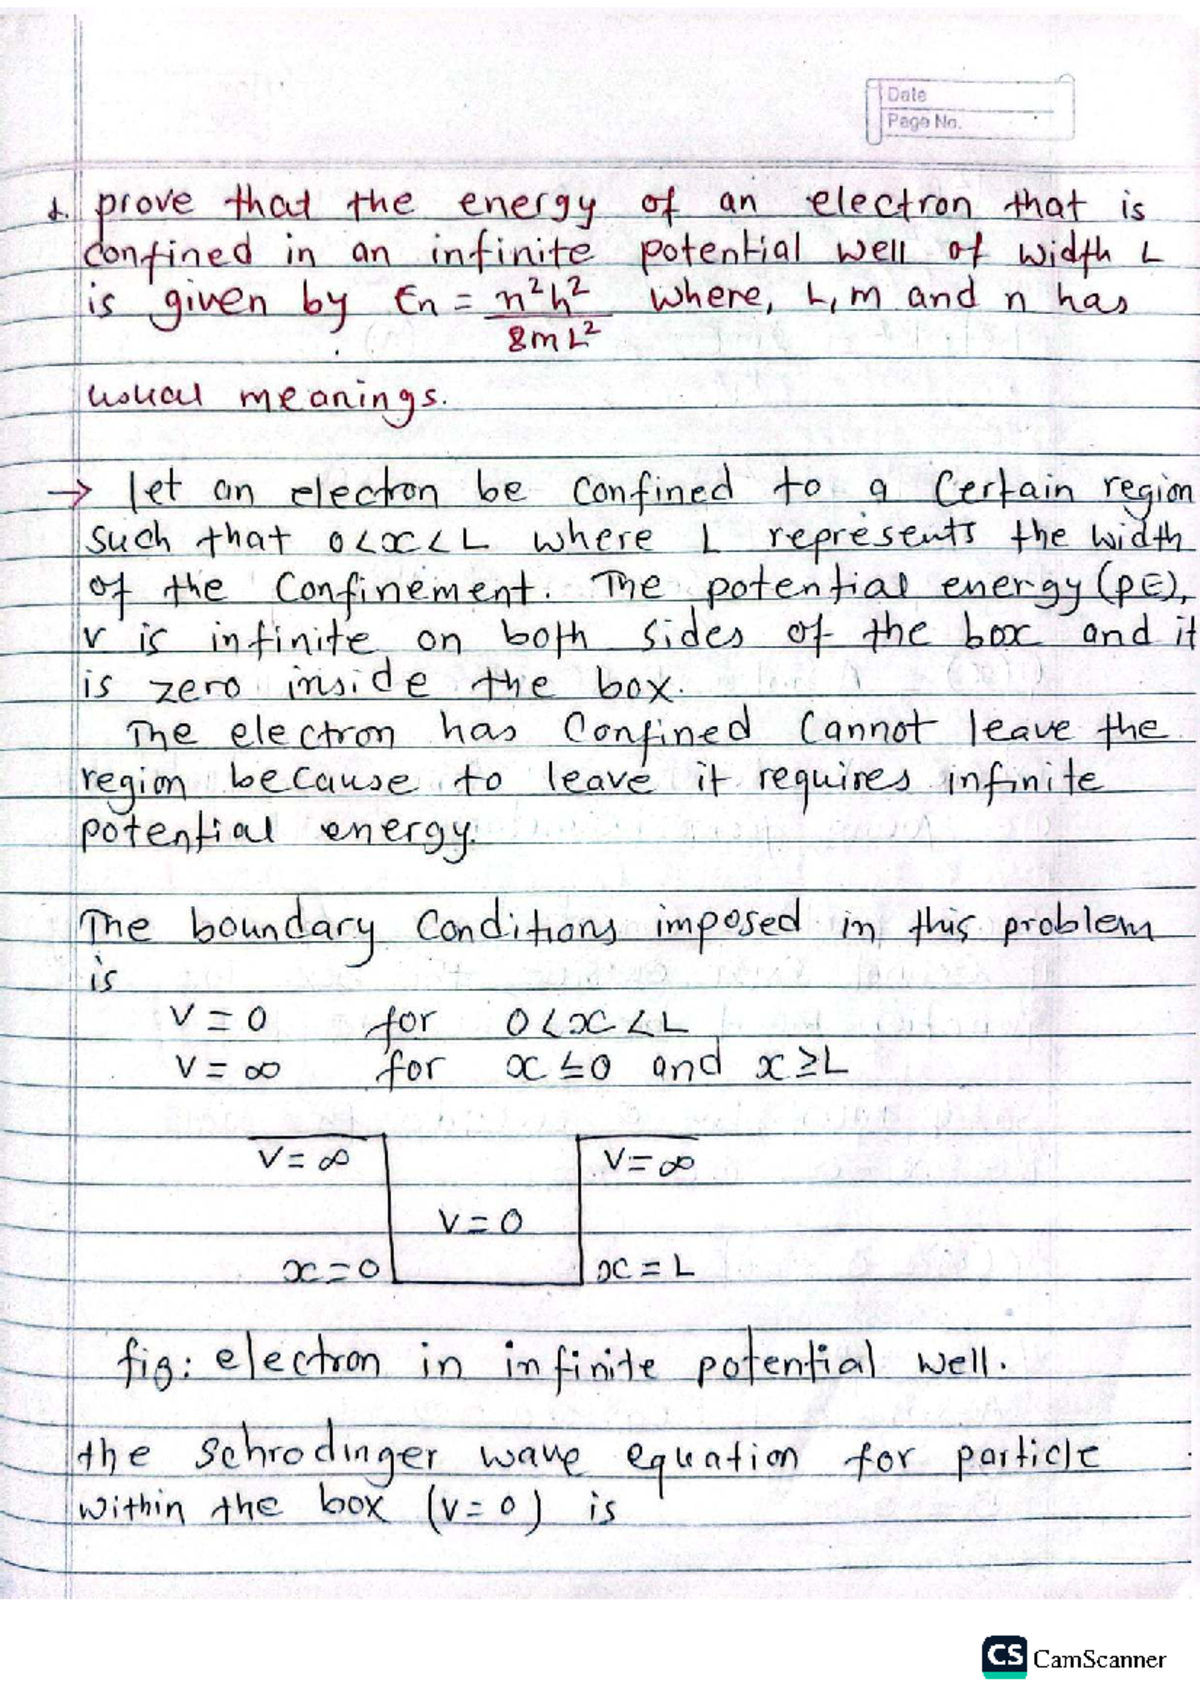 Date
Page No.
1. prove that the energy of an electron that is
confined in an infinite potential well of width L
is given by En = n²h² / 8mL² where, L, m and n has
usual meanings.
→ let an electron be confined to a certain region
such that 0<x<L where L represents the width
of the confinement. The potential energy (PE),
V is infinite on both sides of the box and it
is zero inside the box.
The electron has confined cannot leave the
region because to leave it requires infinite
potential energy.
The boundary conditions imposed in this problem
is
V = 0 for 0<x<L
V = ∞ for x≤0 and x≥L
V = ∞ V = ∞
V = 0
x = 0 x = L
fig: electron in infinite potential well.
the schrodinger wave equation for particle
within the box (v=0) is
CS CamScanner